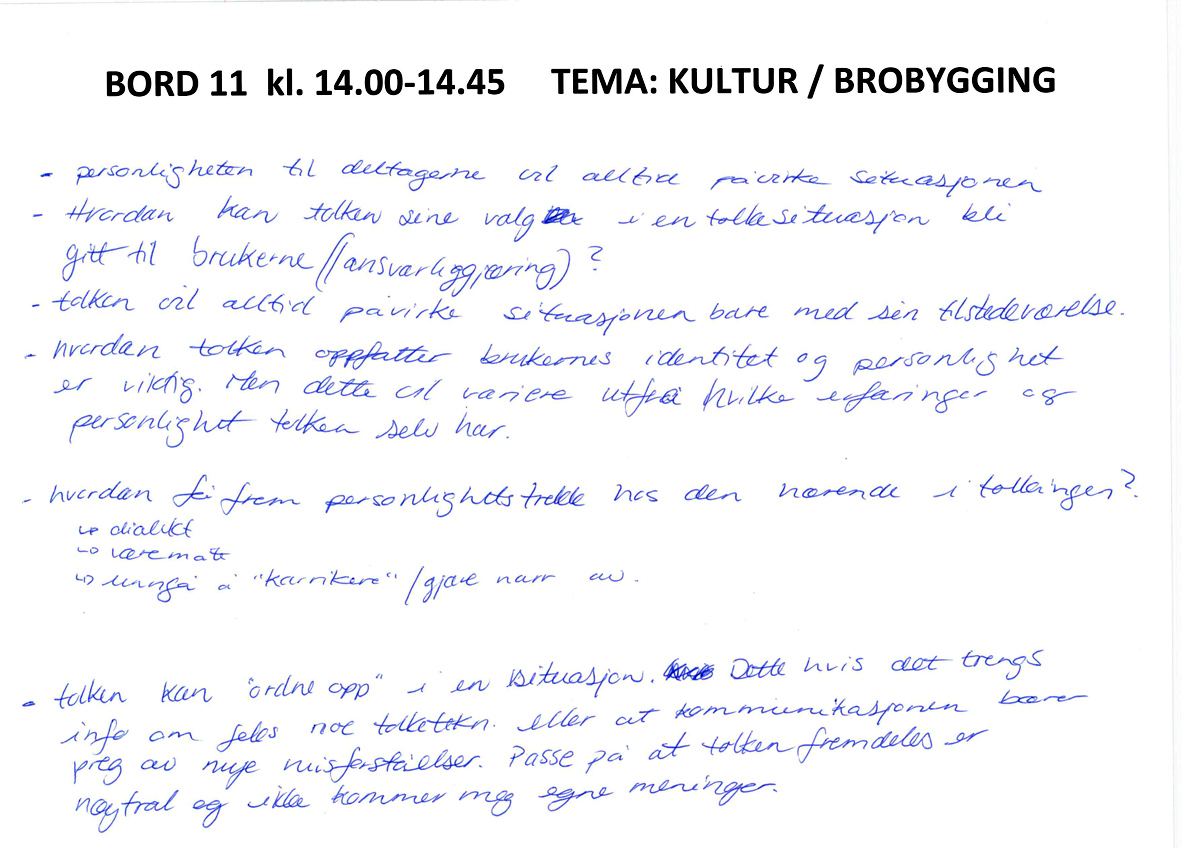 BORD 11 kl. 14.00-14.45 TEMA: KULTUR / BROBYGGING
- personligheten til deltagerne vil alltid påvirke situasjonen
- Hvordan kan tolken sine valg i en tolkesituasjon bli
gitt til brukerne/(ansvarliggjøring)?
- tolken vil alltid påvirke situasjonen bare med sin tilstedeværelse.
- hvordan tolken oppfatter brukernes identitet og personlighet
er viktig. Men dette vil variere utfra hvilke erfaringer og
personlighet tolken selv har.
- hvordan få frem personlighetstrekk hos den hørende i tolkingen?
↳ dialekt
↳ væremåte
↳ unngå å "karrikere" / gjøre narr av.
- tolken kan "ordne opp" i en situasjon. Dette hvis det trengs
info om f.eks noe tolketekn. eller at kommunikasjonen bærer
preg av mye misforståelser. Passe på at tolken fremdeles er
nøytral og ikke kommer med egne meninger.